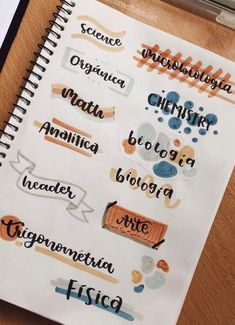 science
microbiología
Orgánica
Math
CHEMISTRY
Analítica
biología
header
biología
Arte
trigonometría
Física